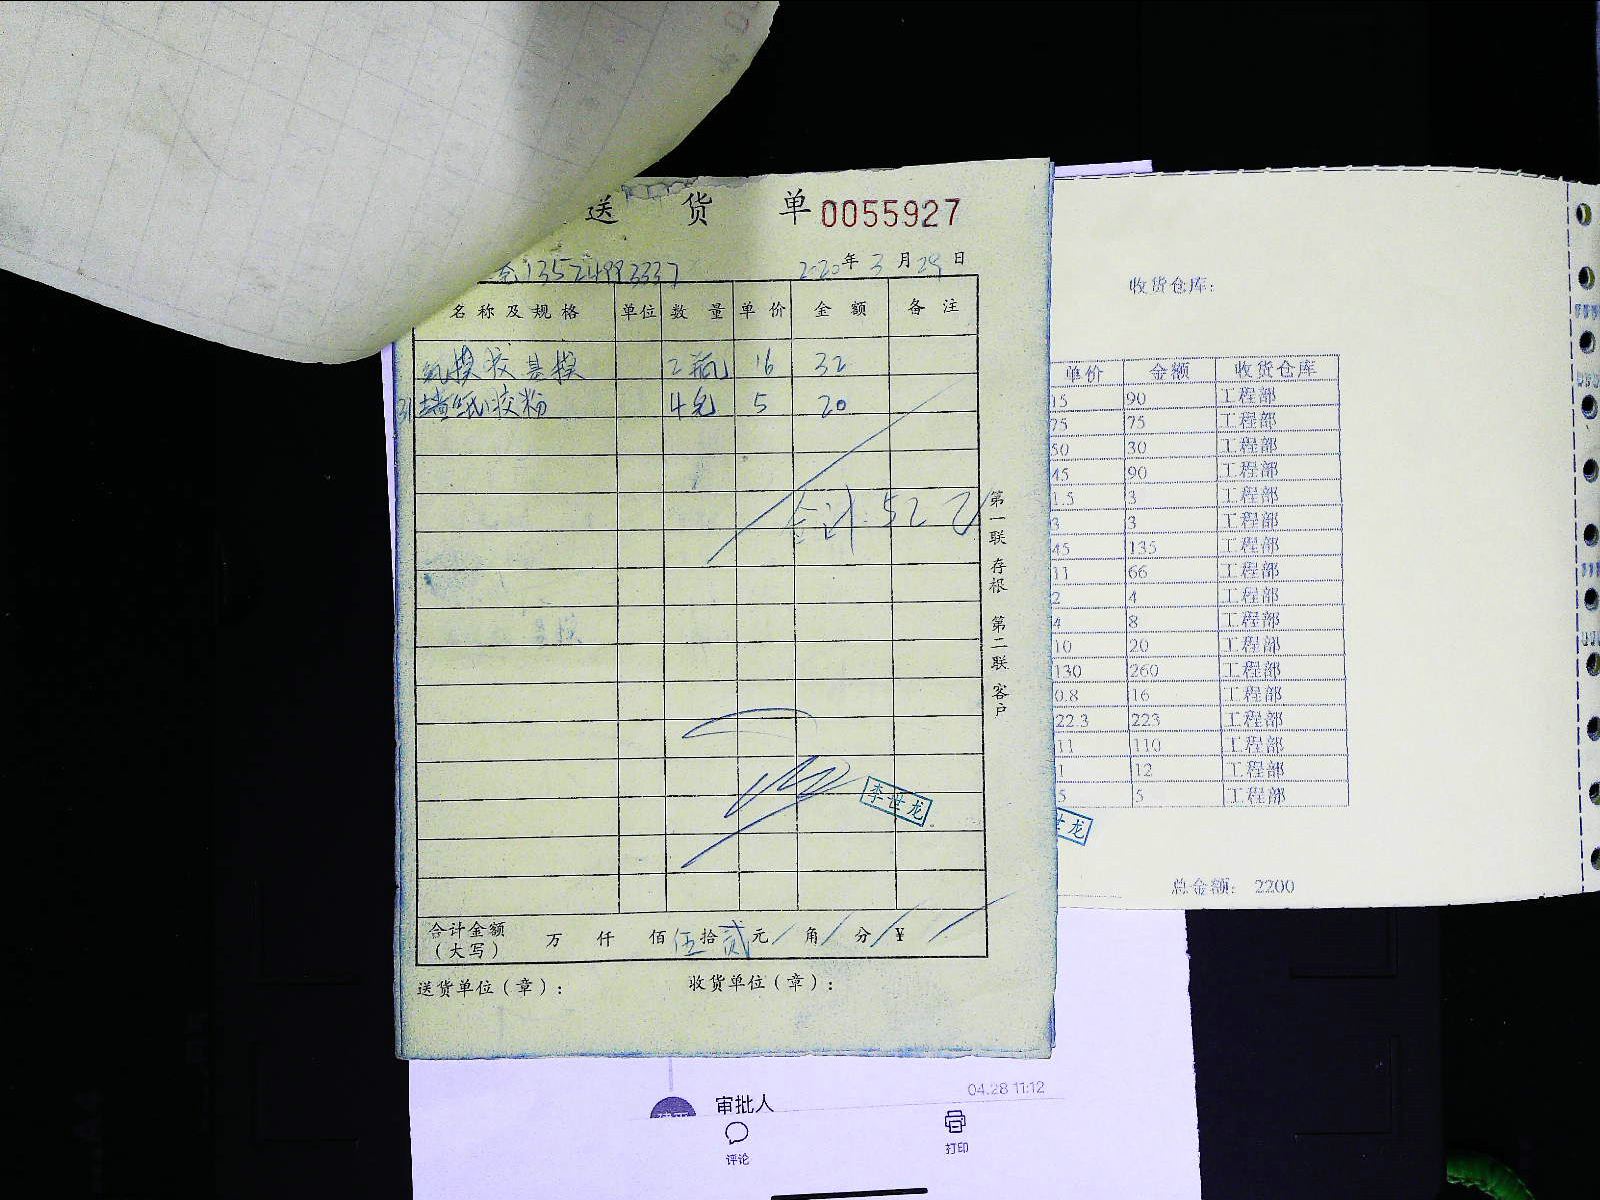 送 货 单 0055927
13524993337 2020年 3 月 29 日
名称及规格 单位 数量 单价 金额 备注
基膜 2瓶 16 32
墙纸胶粉 4包 5 20
合计:52元
第一联 存根 第二联 客户
李世龙
合计金额（大写） 万 仟 佰 伍拾 贰元 / 角 / 分 / ¥ /
送货单位（章）： 收货单位（章）：
收货仓库：
单价 金额 收货仓库
15 90 工程部
75 75 工程部
50 30 工程部
45 90 工程部
1.5 3 工程部
3 3 工程部
45 135 工程部
11 66 工程部
2 4 工程部
4 8 工程部
10 20 工程部
130 260 工程部
0.8 16 工程部
22.3 223 工程部
11 110 工程部
1 12 工程部
5 5 工程部
龙
总金额： 2200
审批人 04.28 11:12
评论 打印